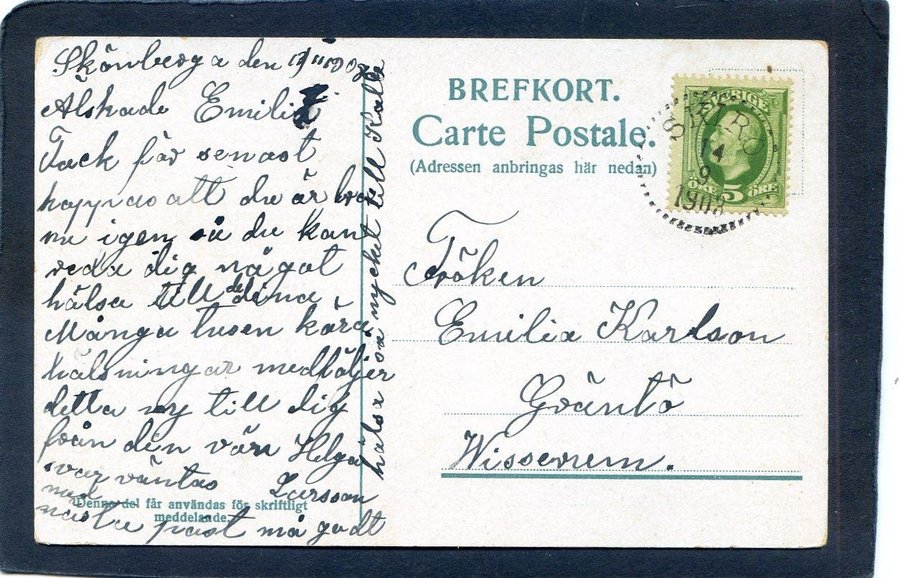 Skönberga den
Älskade Emilia
Tack för senast
hoppas att du är bra
nu igen så du kan
reda dig något
hälsa till de dina
Många tusen kära
hälsningar medföljer
detta ny till dig
från din vän Helga
svar väntas Larsson
med
nästa påst må godt
hälsa så mycket till Kalle
Denna del får användas för skriftligt
meddelande.
BREFKORT.
Carte Postale.
(Adressen anbringas här nedan)
SVERIGE
ÖRE 5 ÖRE
14
9
1908
Fröken
Emilia Karlson
Gräntö
Wisserrem.